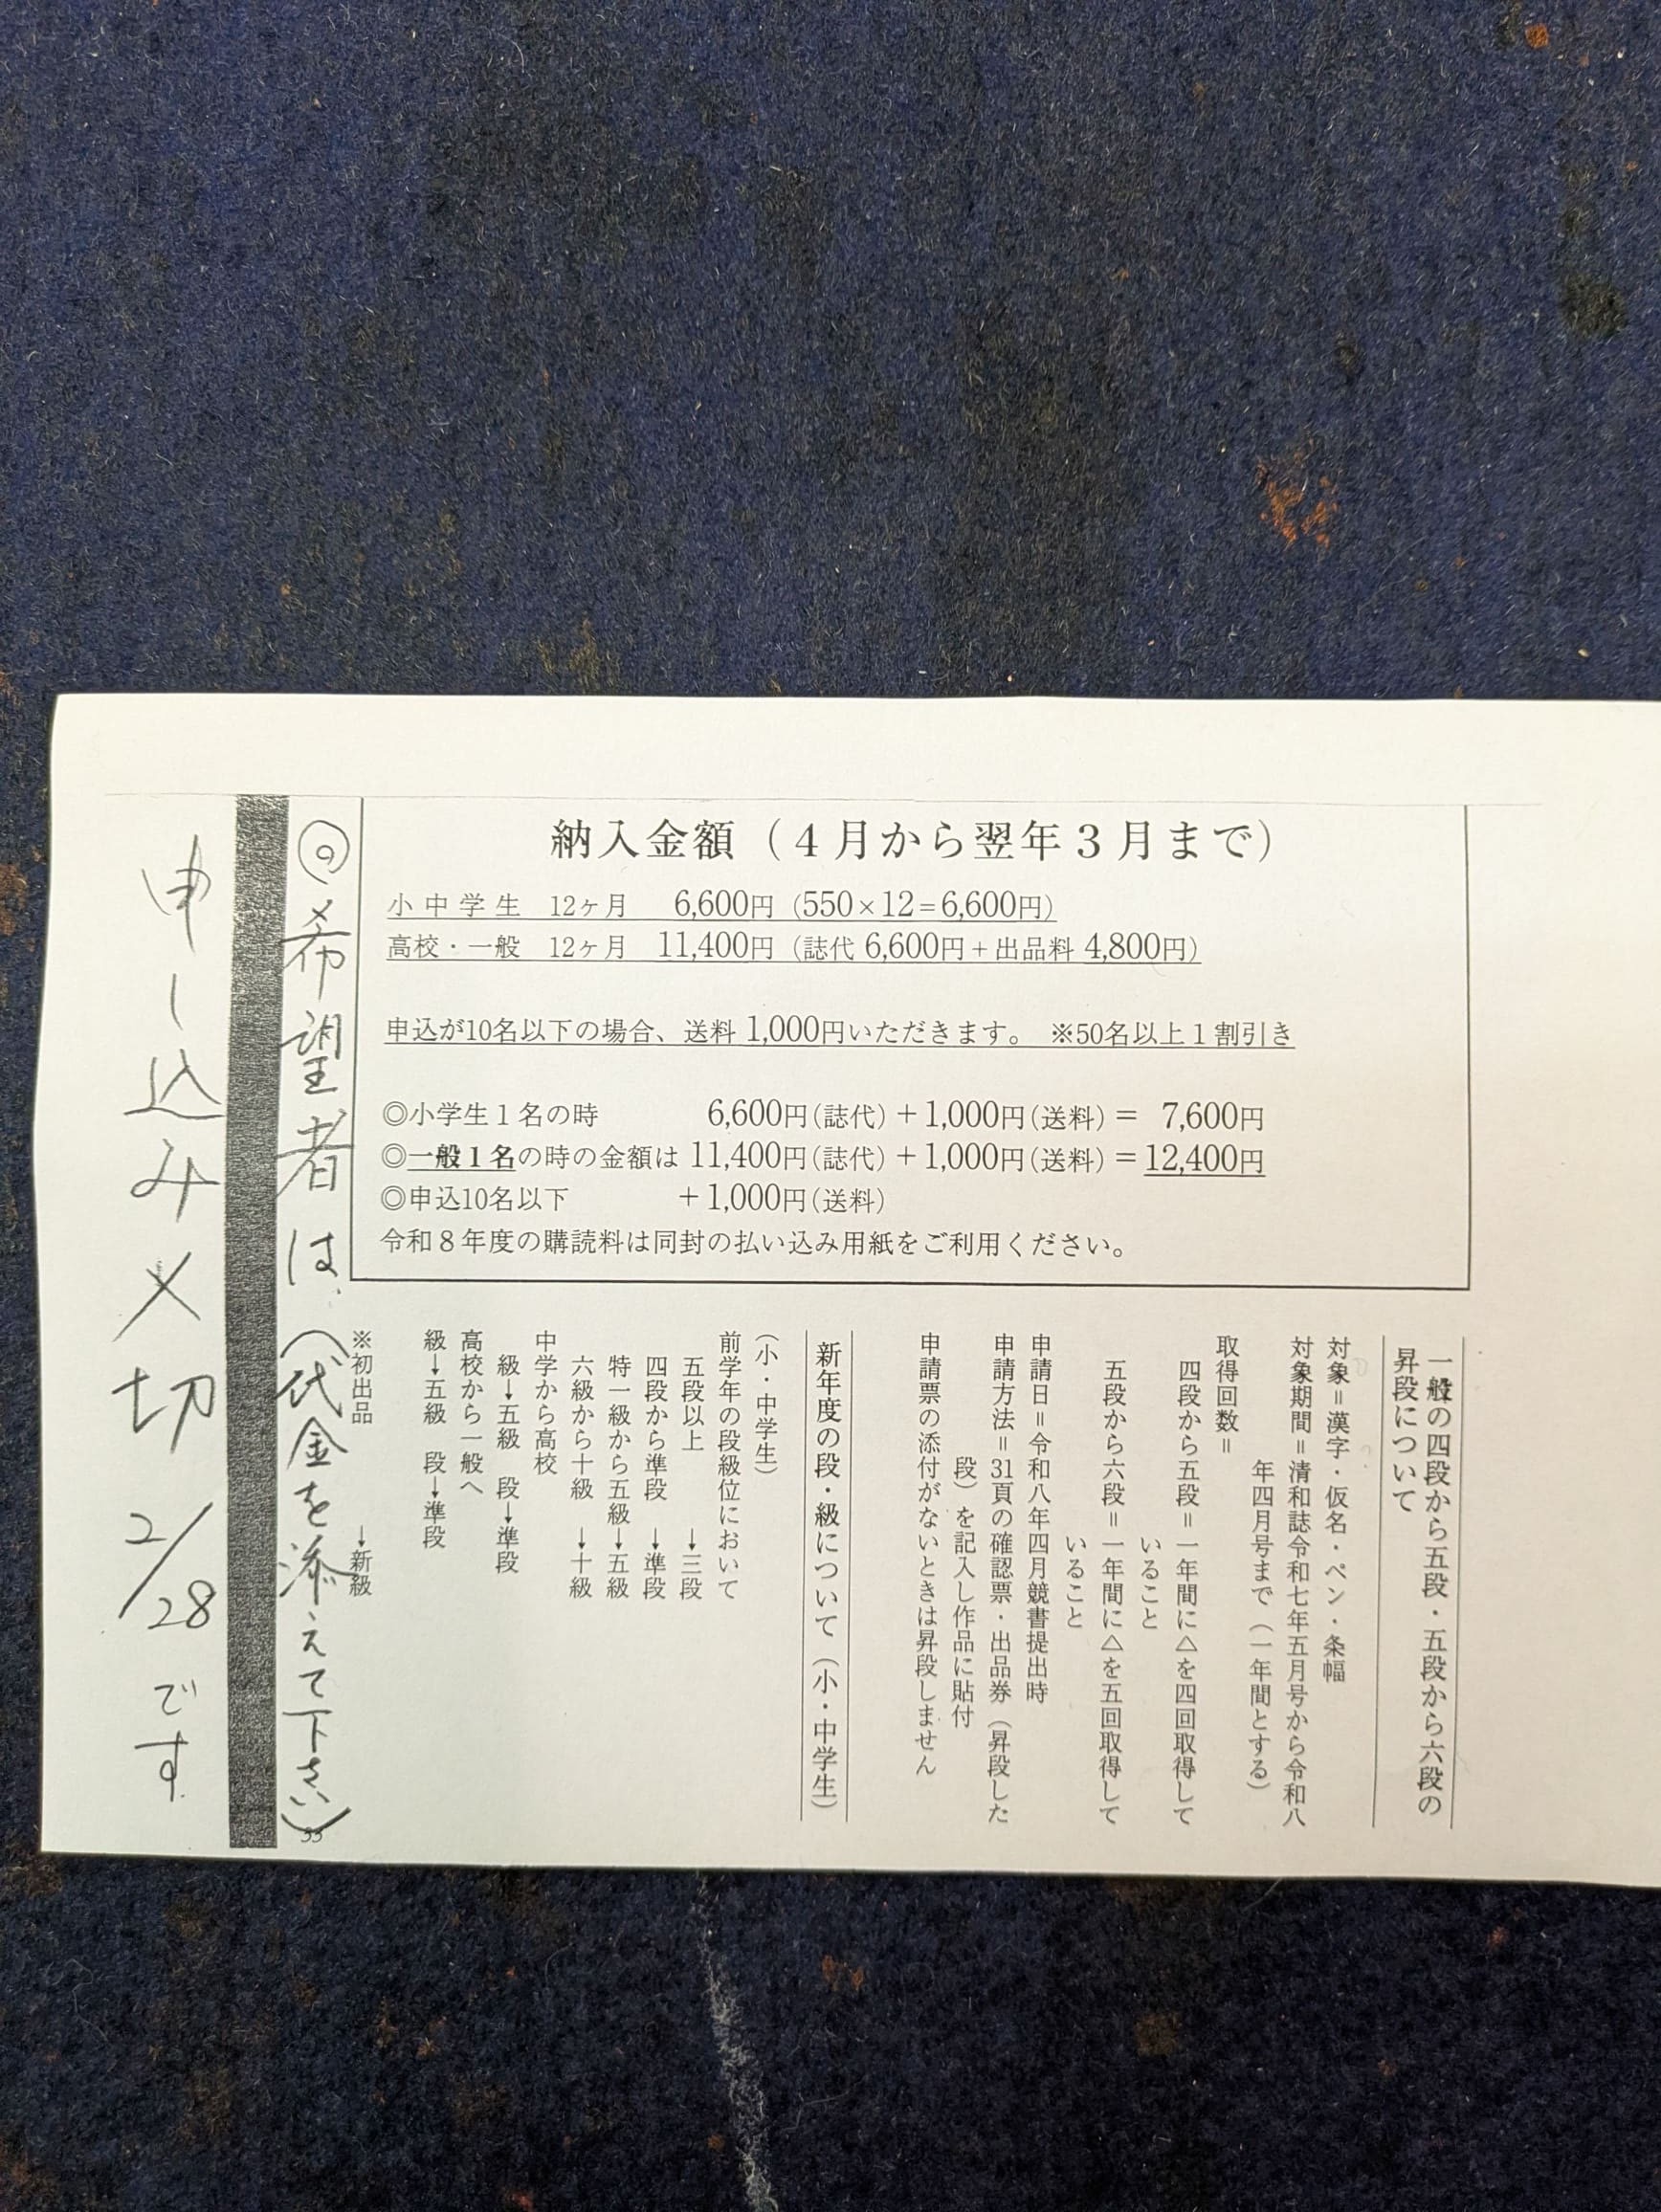 納入金額（4月から翌年3月まで）
小中学生　12ヶ月　6,600円（550×12＝6,600円）
高校・一般　12ヶ月　11,400円（誌代 6,600円＋出品料 4,800円）
申込が10名以下の場合、送料 1,000円いただきます。　※50名以上1割引き
◎小学生1名の時　6,600円（誌代）＋1,000円（送料）＝ 7,600円
◎一般1名の時の金額は 11,400円（誌代）＋1,000円（送料）＝12,400円
◎申込10名以下　＋1,000円（送料）
令和8年度の購読料は同封の払い込み用紙をご利用ください。
一般の四段から五段・五段から六段の
昇段について
対象＝漢字・仮名・ペン・条幅
対象期間＝清和誌令和七年五月号から令和八
年四月号まで（一年間とする）
取得回数＝
四段から五段＝一年間に△を四回取得して
いること
五段から六段＝一年間に△を五回取得して
いること
申請日＝令和八年四月競書提出時
申請方法＝31頁の確認票・出品券（昇段した
段）を記入し作品に貼付
申請票の添付がないときは昇段しません
新年度の段・級について（小・中学生）
（小・中学生）
前学年の段級位において
五段以上　→三段
四段から準段　→準段
特一級から五級→五級
六級から十級　→十級
中学から高校
級→五級　段→準段
高校から一般へ
級→五級　段→準段
※初出品　→新級
◎希望者は、（代金を添えて下さい）
33
申し込み〆切 2/28 です